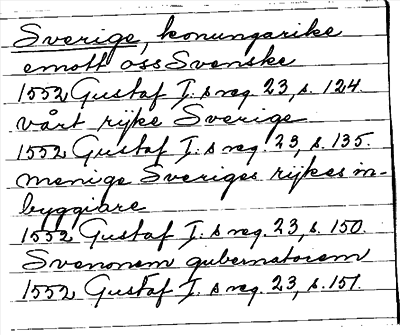 Sverige, konungarike
emott oss Svenske
1552 Gustaf I:s reg. 23, s. 124.
vårt rijke Sverige
1552 Gustaf I:s reg. 23, s. 135.
menige Sveriges rijkes in-
byggiare
1552 Gustaf I:s reg. 23, s. 150.
Svenonem gubernatorem
1552 Gustaf I:s reg. 23, s. 151.